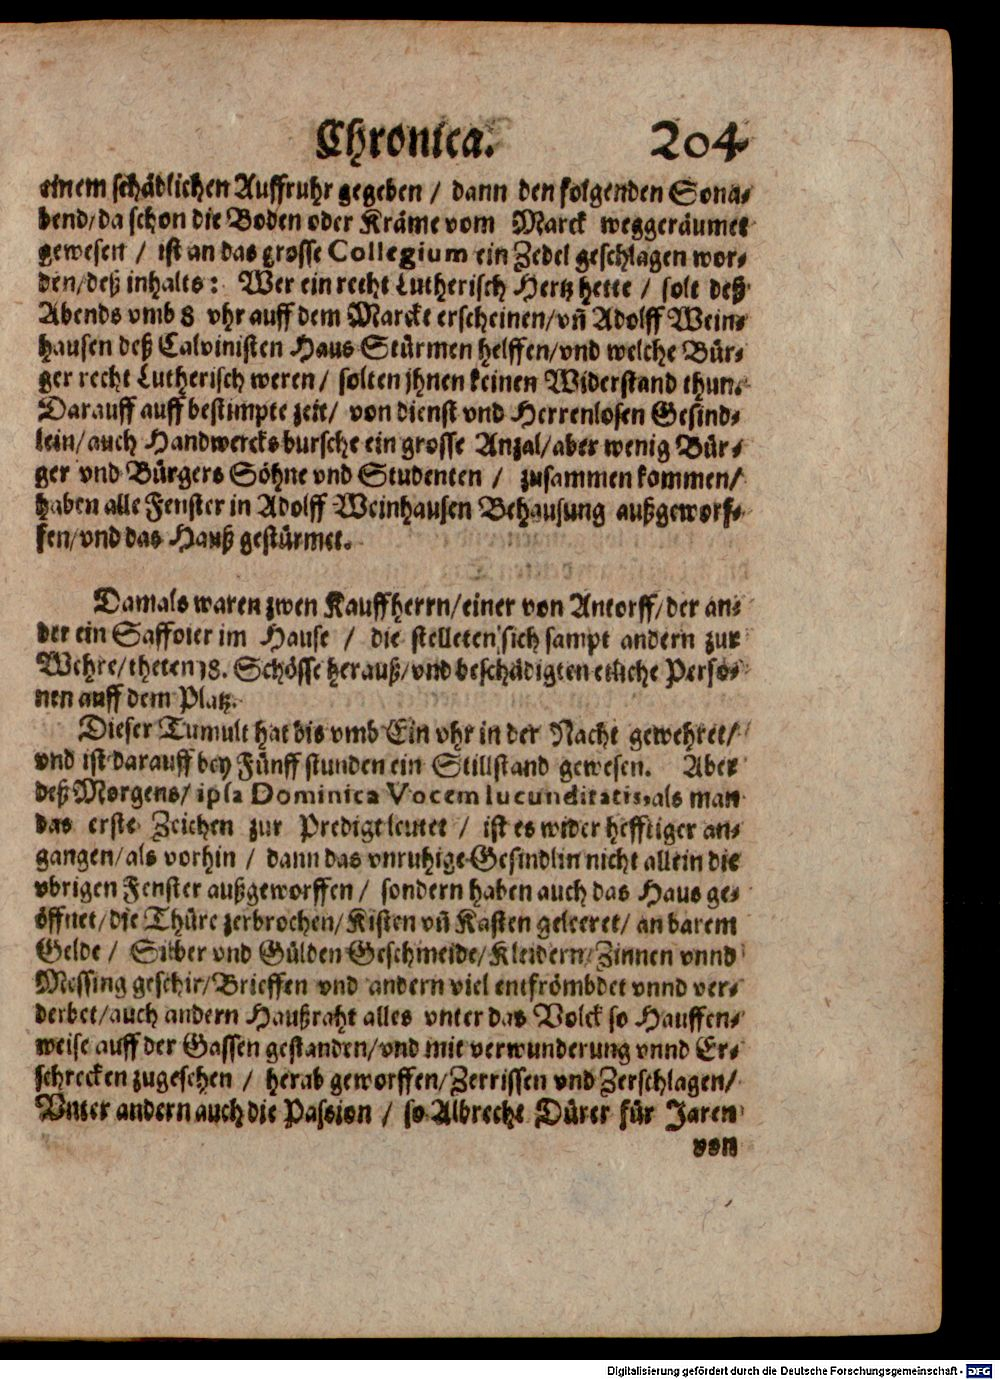 Chronica. 204
einem schädlichen Auffruhr gegeben / dann den folgenden Sona-
bend/da schon die Boden oder Kräme vom Marck weggeräumet
gewesen / ist an das grosse Collegium ein Zedel geschlagen wor-
den/deß inhalts: Wer ein recht Lutherisch Hertz hette / solt deß
Abends vmb 8 vhr auff dem Marckt erscheinen/vñ Adolff Wein-
hausen deß Calvinisten Haus Stürmen helffen/vnd welche Bür-
ger recht Lutherisch weren/ solten jhnen keinen Widerstand thun.
Darauff auff bestimpte zeit/ von dienst vnd Herrenlosen Gesind-
lein/auch Handwercksbursche ein grosse Anzal/aber wenig Bür-
ger vnd Bürgers Söhne vnd Studenten / zusammen kommen/
haben alle Fenster in Adolff Weinhausen Behausung außgeworf-
fen/vnd das Hauß gestürmet.
Damals waren zwen Kauffherrn/einer von Antorff/der an-
der ein Saffoier im Hause / die stelleten sich sampt andern zur
Wehre/theten 18. Schösse herauß/vnd beschädigten etliche Perso-
nen auff dem Platz.
Dieser Tumult hat bis vmb Ein vhr in der Nacht gewehret/
vnd ist darauff bey Fünff stunden ein Stillstand gewesen. Aber
deß Morgens/ ipsa Dominica Vocem Iucunditatis, als man
das erste Zeichen zur Predigt leutet / ist es wider hefftiger an-
gangen/als vorhin / dann das vnruhige Gesindlin nicht allein die
vbrigen Fenster außgeworffen / sondern haben auch das Haus ge-
öffnet/die Thüre zerbrochen/Kisten vñ Kasten geleeret/ an barem
Gelde / Silber vnd Gülden Geschmeide/Kleidern/Zinnen vnnd
Messing geschir/Brieffen vnd andern viel entfrömbdet vnnd ver-
derbet/auch andern Haußraht alles vnter das Volck so Hauffen-
weise auff der Gassen gestanden/vnd mit verwunderung vnnd Er-
schrecken zugesehen / herab geworffen/Zerrissen vnd Zerschlagen/
Vnter andern auch die Passion / so Albrecht Dürer für Jaren
von
Digitalisierung gefördert durch die Deutsche Forschungsgemeinschaft - DFG